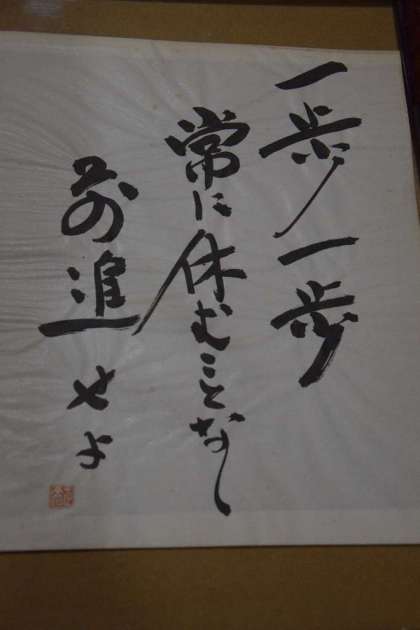 一歩一歩
常に休むことなく
前進せよ